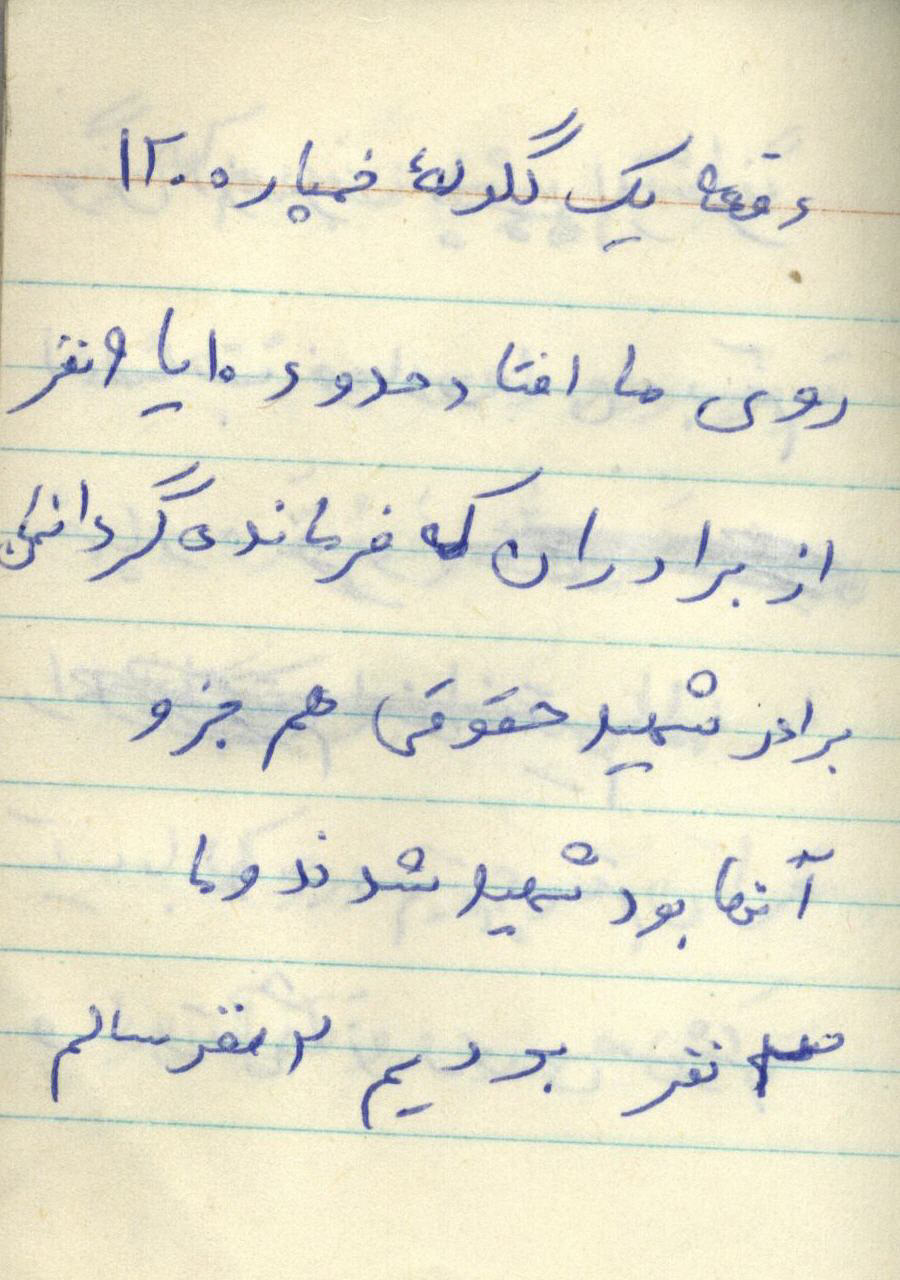 دقعه یک گلولهٔ خمپاره ۱۲۰
روی ما افتاد حدود ۱۰ یا ۹ نفر
از برادران که فرمانده گردانمی
برادر شهید حقوقی هم جزو
آنها بود شهید شدند و ما
۳ نفر بودیم ۲ نفر سالم